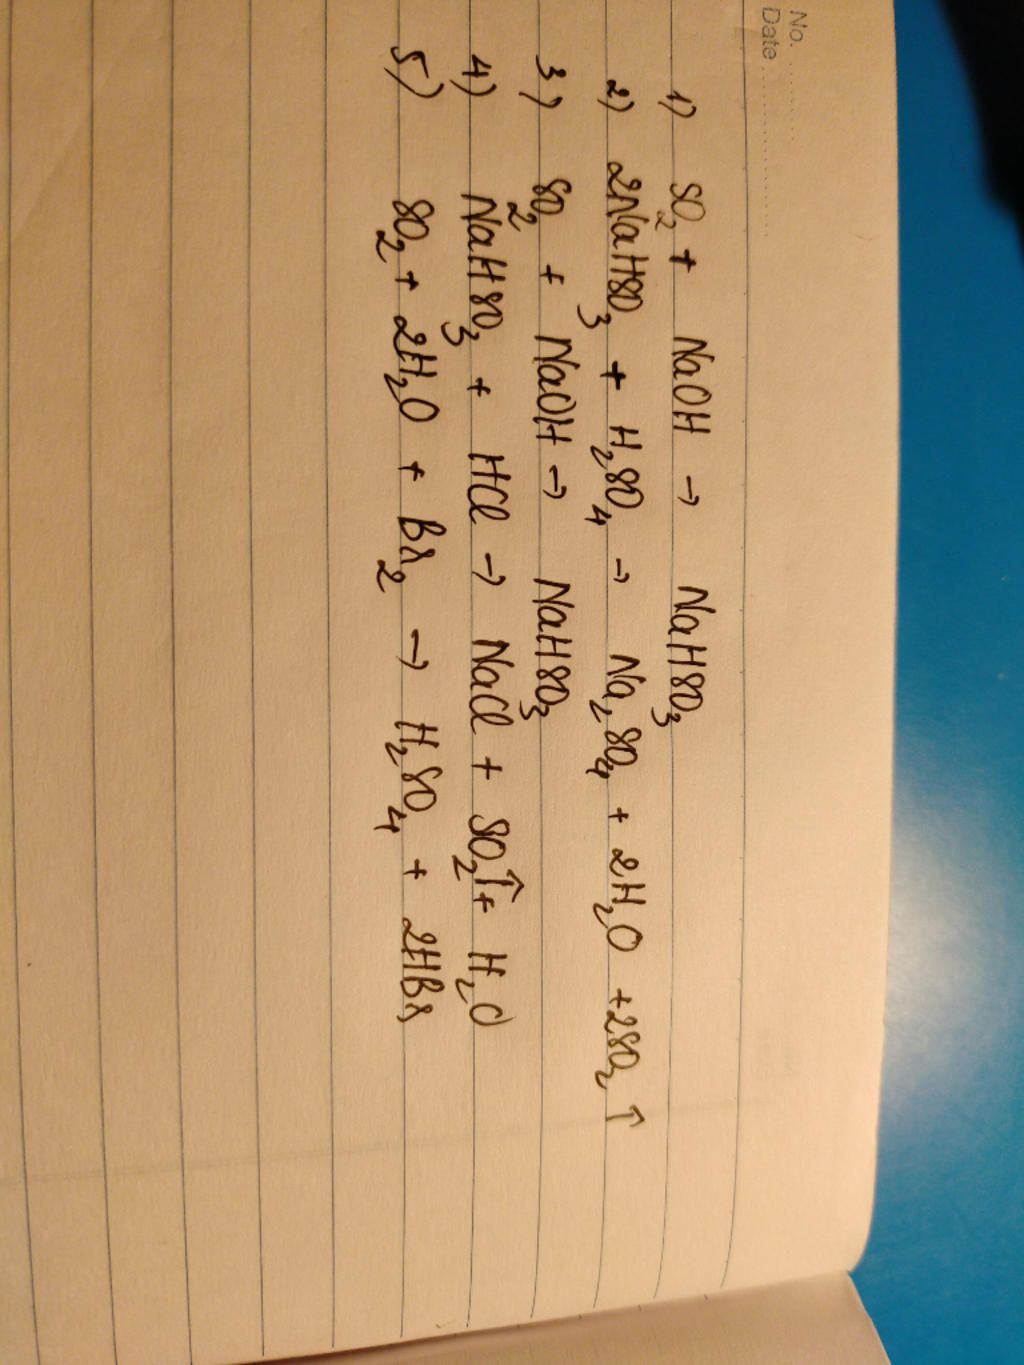 No.
Date
1) SO₂ + NaOH → NaHSO₃
2) 2NaHSO₃ + H₂SO₄ → Na₂SO₄ + 2H₂O + 2SO₂ ↑
3) SO₂ + NaOH → NaHSO₃
4) NaHSO₃ + HCl → NaCl + SO₂↑ + H₂O
5) SO₂ + 2H₂O + Br₂ → H₂SO₄ + 2HBr